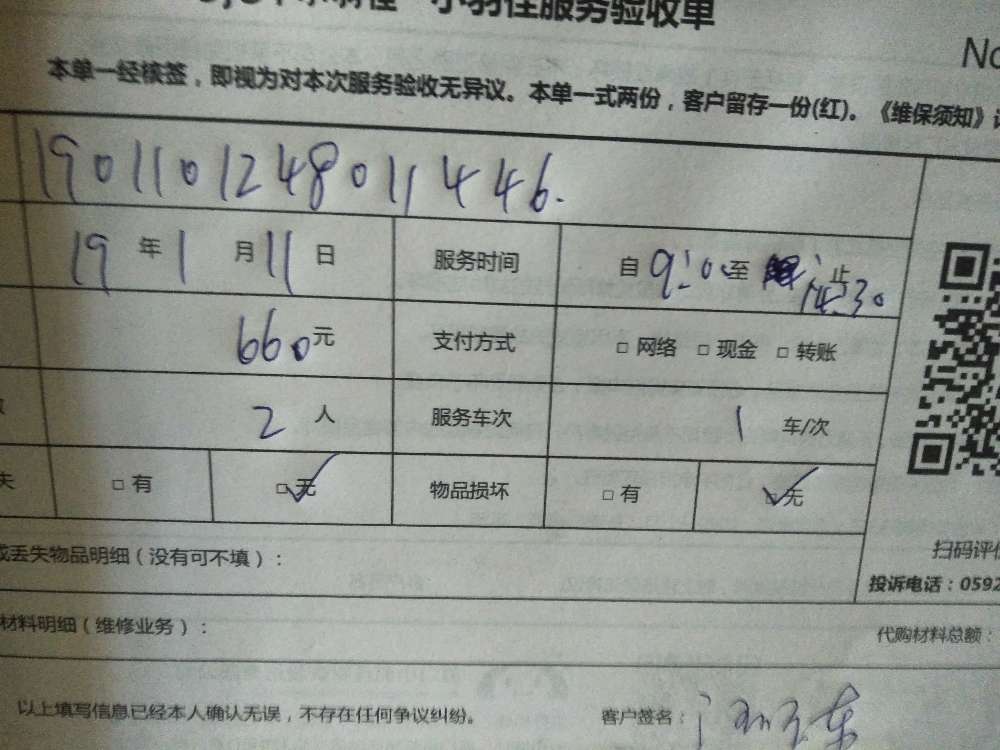 小羽佳服务验收单
No
本单一经核签，即视为对本次服务验收无异议。本单一式两份，客户留存一份(红)。《维保须知》
1901101248011446.
19年1月11日 服务时间 自9:00至 14:30止
660元 支付方式 □网络 □现金 □转账
2人 服务车次 1车/次
失 □有 □无 物品损坏 □有 □无
或丢失物品明细（没有可不填）：
扫码评价
投诉电话：0592
材料明细（维修业务）：
代购材料总额：
以上填写信息已经本人确认无误，不存在任何争议纠纷。 客户签名：